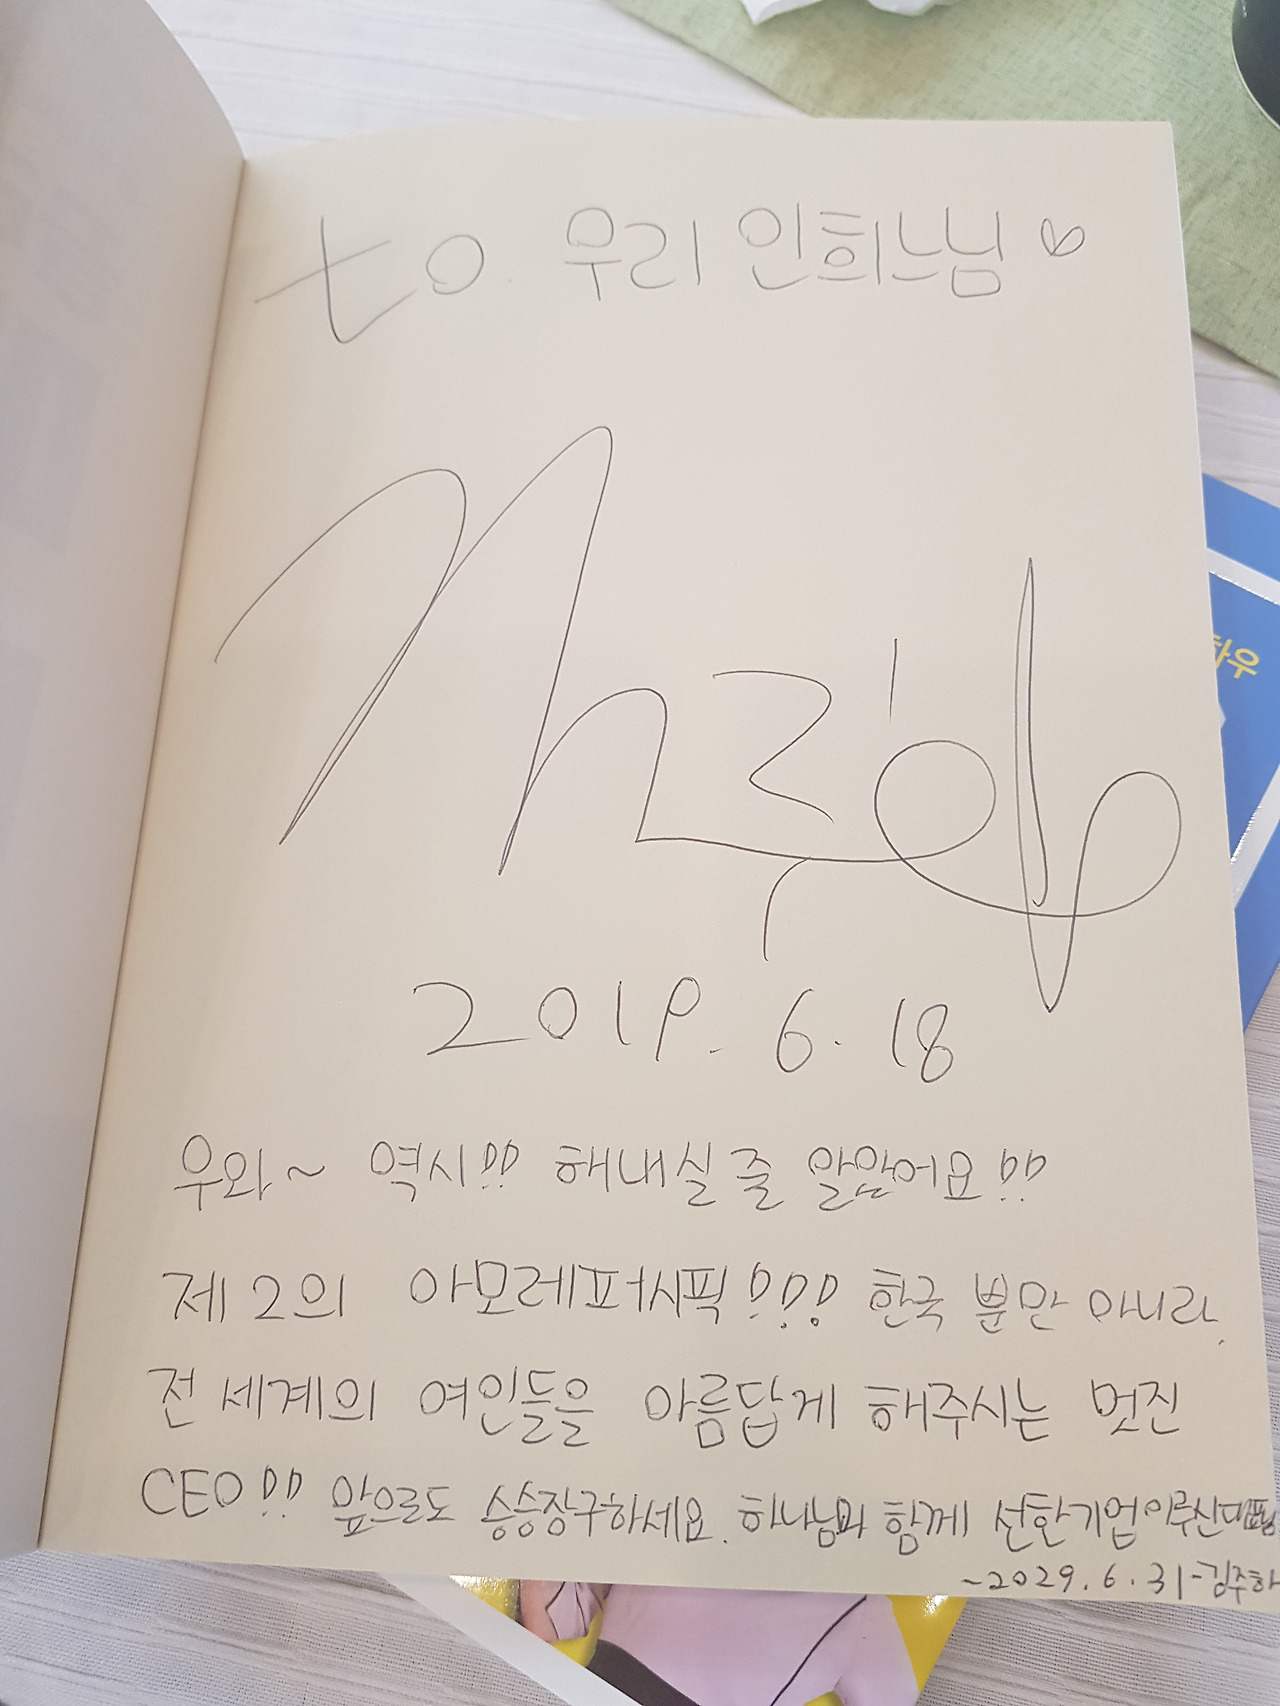 to. 우리 인희느님♡
2019. 6. 18
우와~ 역시!! 해내실 줄 알았어요!!
제2의 아모레퍼시픽!!! 한국 뿐만 아니라,
전 세계의 여인들을 아름답게 해주시는 멋진
CEO!! 앞으로도 승승장구하세요. 하나님과 함께 선한기업 이루신 대표님
~2029.6.31-김주하
하우